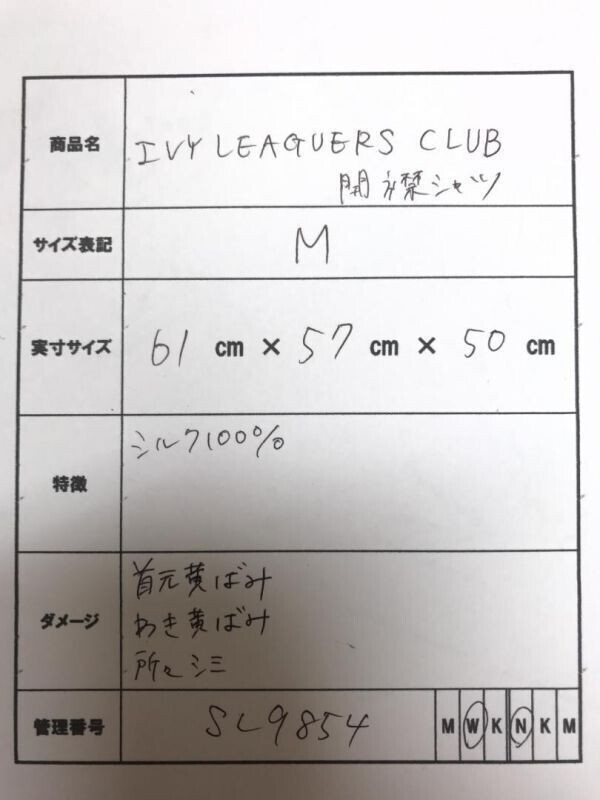 商品名
IVY LEAGUERS CLUB
開襟シャツ
サイズ表記
M
実寸サイズ
61 cm × 57 cm × 50 cm
特徴
シルク100%
ダメージ
首元黄ばみ
わき黄ばみ
所々シミ
管理番号
SL9854
M W K N K M